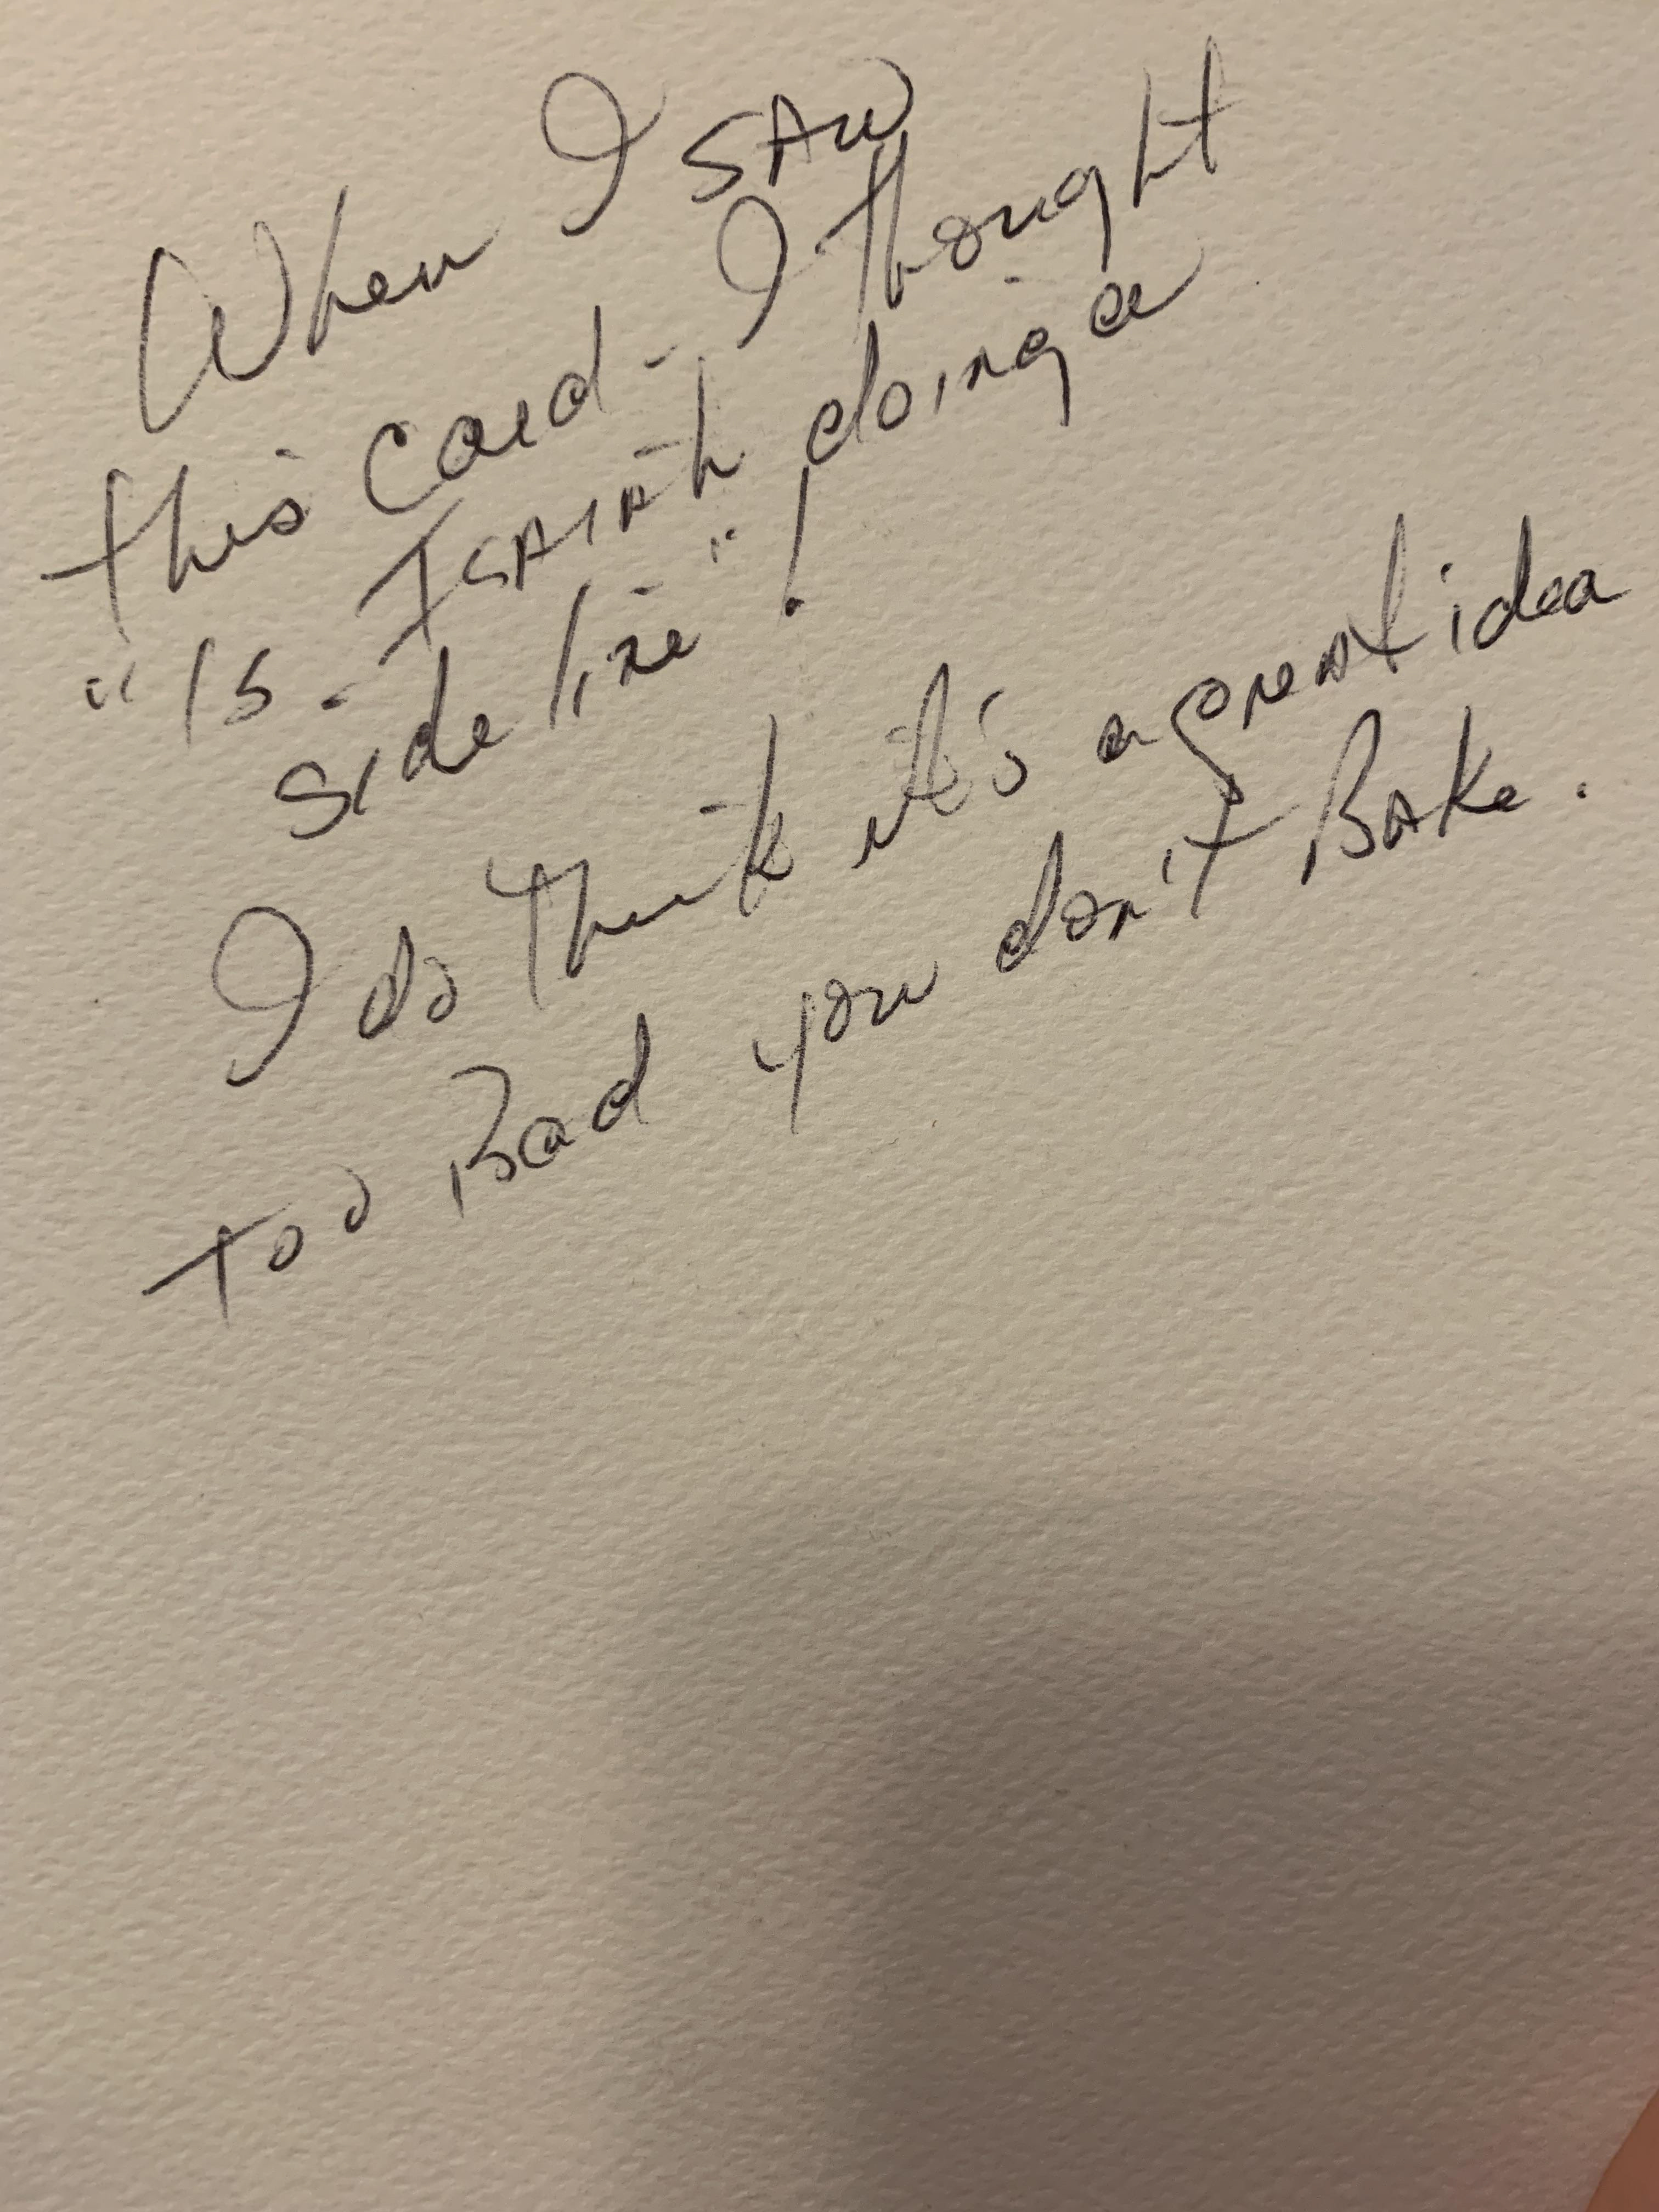 When I SAW
this card - I thought
"Is - ISAIAh doing a
side line"!
I do think it's a great idea
too Bad you don't BAKe.